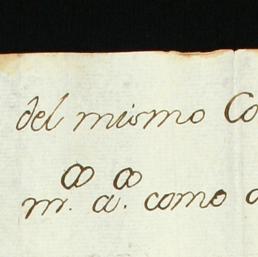 del mismo Co
m.ᵒᵒ a.ᵒᵒ como